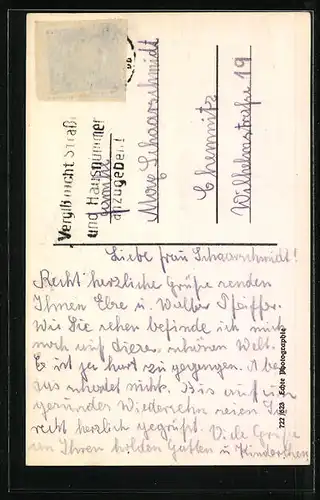 Vergiß nicht Straß
und Hausnummer
anzugeben!
Familie
Max Schaarschmidt
Chemnitz
Wilhelmstraße 19
Liebe Frau Schaarschmidt!
Recht herzliche Grüße senden
Ihnen Else u. Walter Pfeiffer.
Wie Sie sehen befinde ich mich
noch auf dieser schönen Welt.
Es ist ja hart zu gegangen. Aber
das schadet nicht. Bis auf ein
gesundes Wiedersehn seien Sie
recht herzlich gegrüßt. Viele Grüße
an Ihren holden Gatten u. Kinderchen
722/623 Echte Photographie